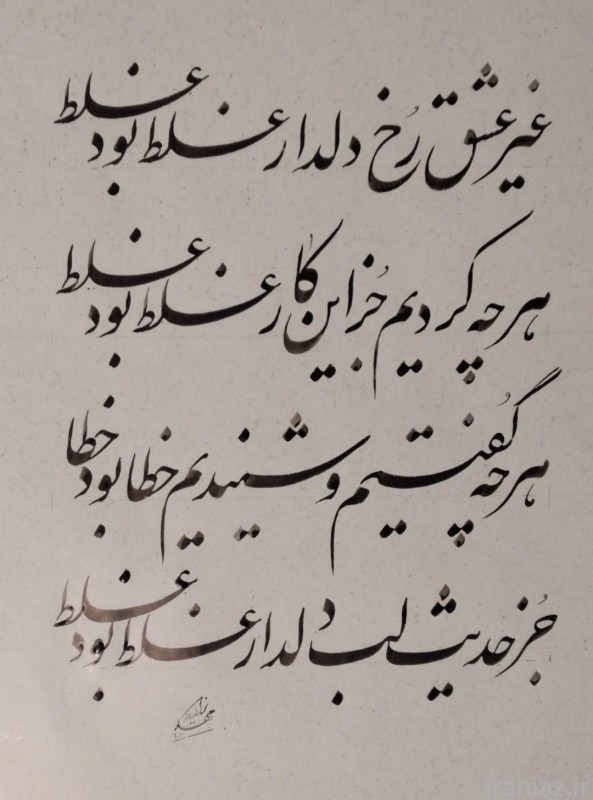 غیر عشق رُخ دلدار غلط بود غلط
هر چه کردیم جُز این کار غلط بود غلط
هر چه گُفتیم و شنیدیم خطا بود خطا
جُز حدیث لب دلدار غلط بود غلط